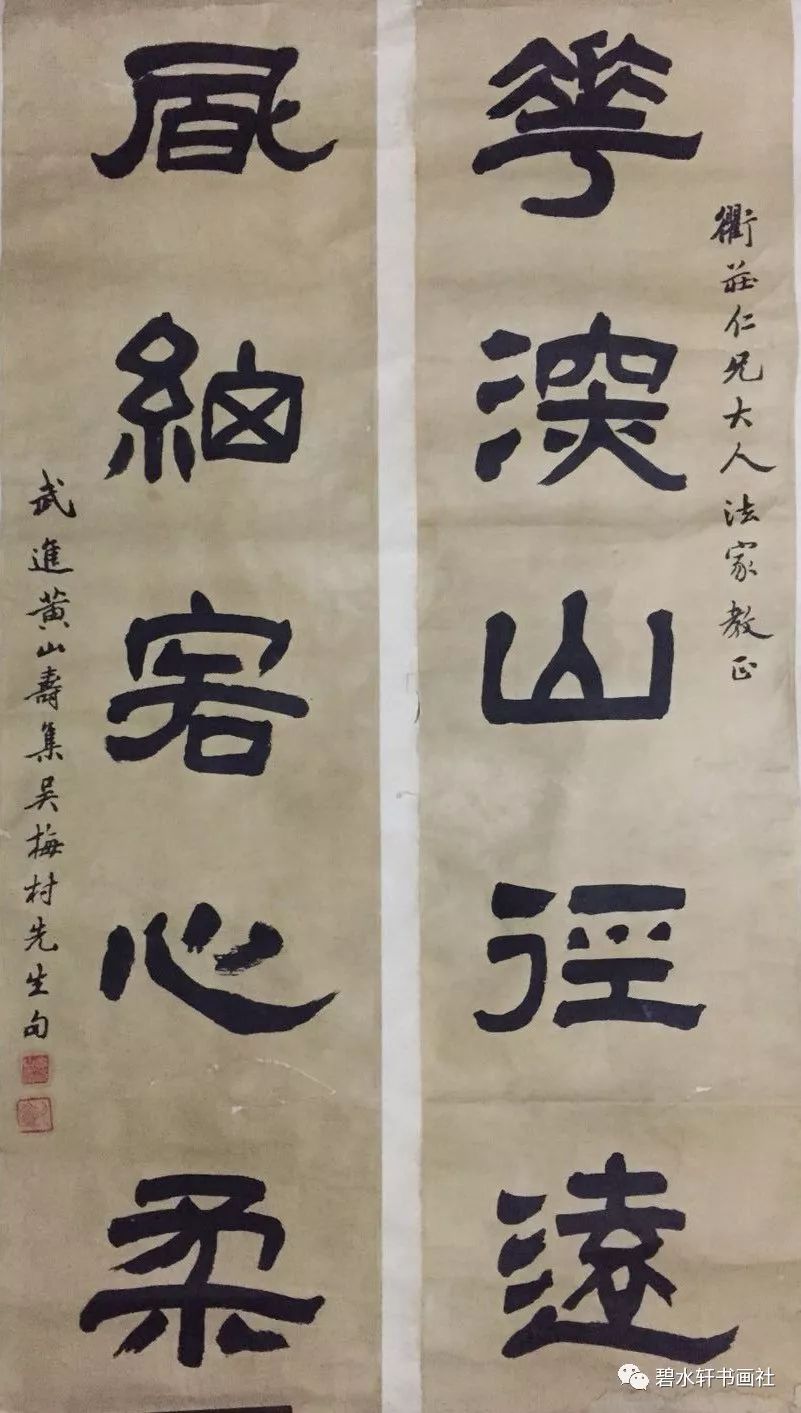 衢莊仁兄大人法家教正
華深山徑遠
風細客心柔
武進黄山壽集吴梅村先生句
碧水轩书画社